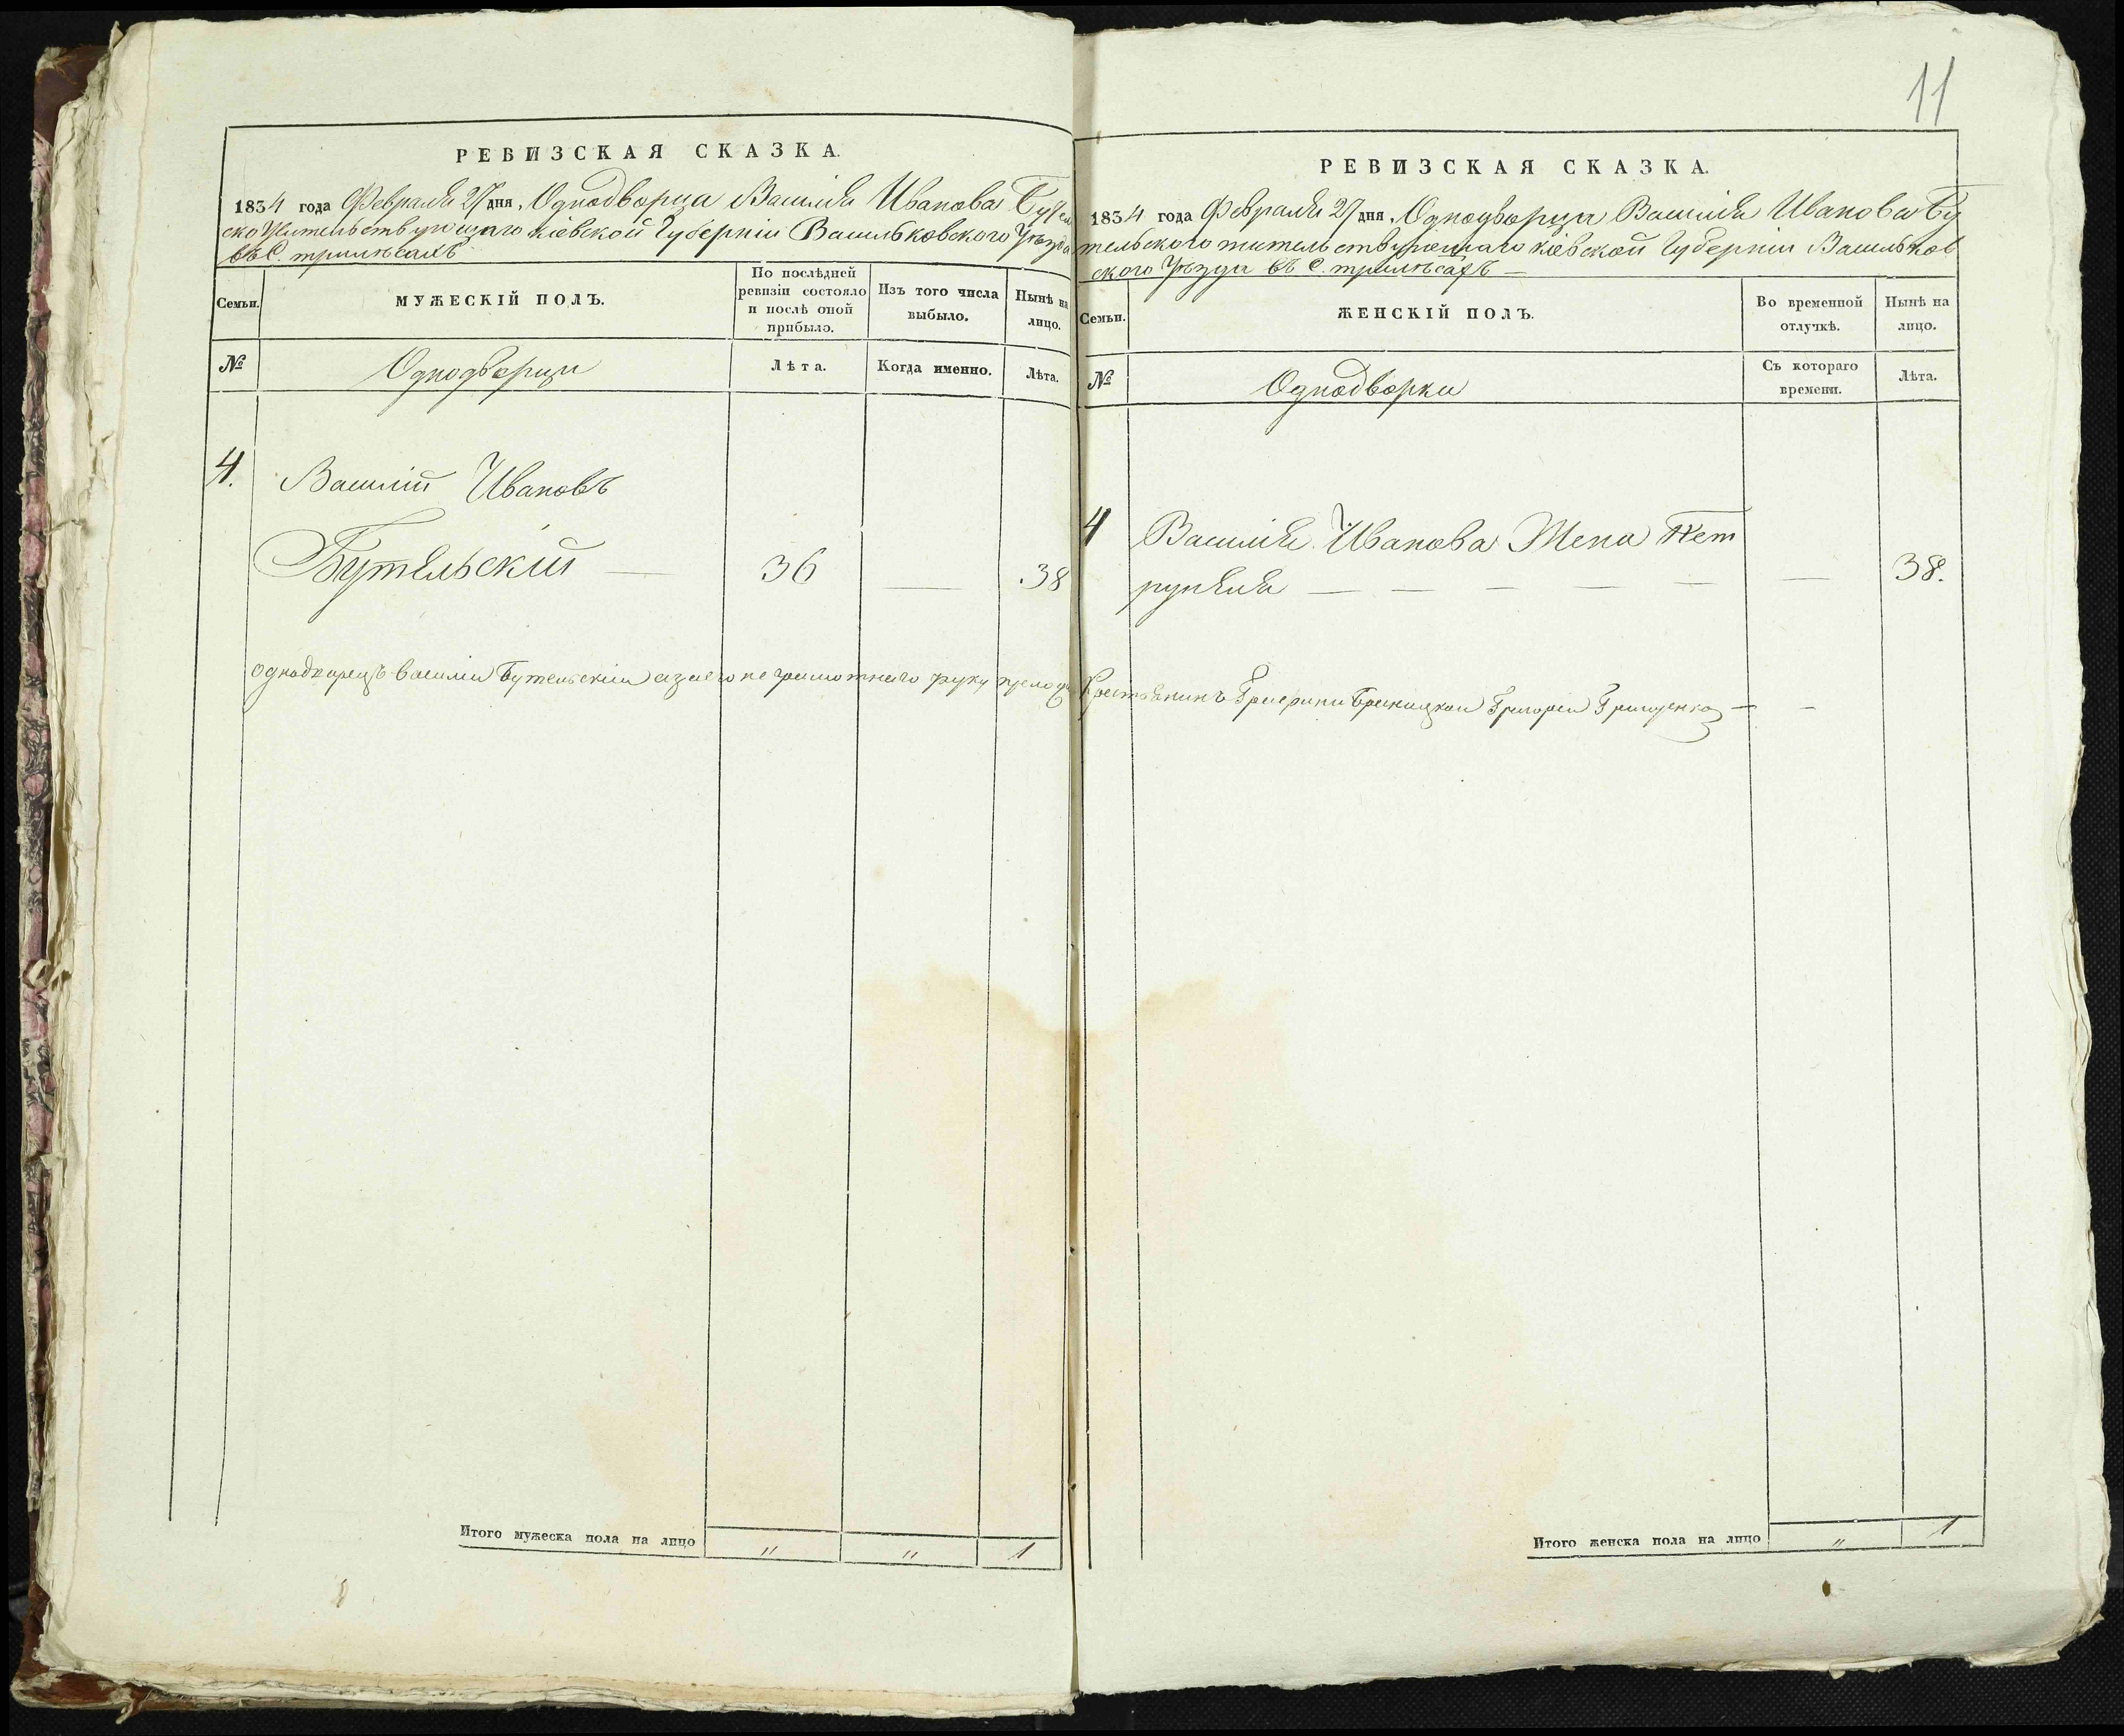 11
РЕВИЗСКАЯ СКАЗКА.
1834 года Февраля 27 дня. Однодворца Василія Иванова Бутель
ско Жительствующаго Кіевской Губерніи Васильковского Уѣзда
въ С. трилѣсахъ
Семьи.
МУЖЕСКІЙ ПОЛЪ.
По послѣдней
ревизіи состояло
и послѣ оной
прибыло.
Изъ того числа
выбыло.
Нынѣ на
лицо.
№
Однодворцы
Лѣта.
Когда именно.
Лѣта.
4.
Василій Ивановъ
Бутельскій — 36 — 38
однодворецъ василии Бутельскии азаего не грамотнаго руку
Итого мужеска пола на лицо " " 1
РЕВИЗСКАЯ СКАЗКА.
1834 года Февраля 27 дня. Однодворца Василія Иванова Бу
тельского жительствующаго Кіевской Губерніи Васильков
ского Уѣзда въ С. трилѣсахъ —
Семьи.
ЖЕНСКІЙ ПОЛЪ.
Во временной
отлучкѣ.
Нынѣ на
лицо.
№
Однодворки
Съ котораго
времени.
Лѣта.
4
Василія Иванова Жена Пет
рунеля — — — — — — 38.
Григореи Грищенко — —
Итого женска пола на лицо " 1